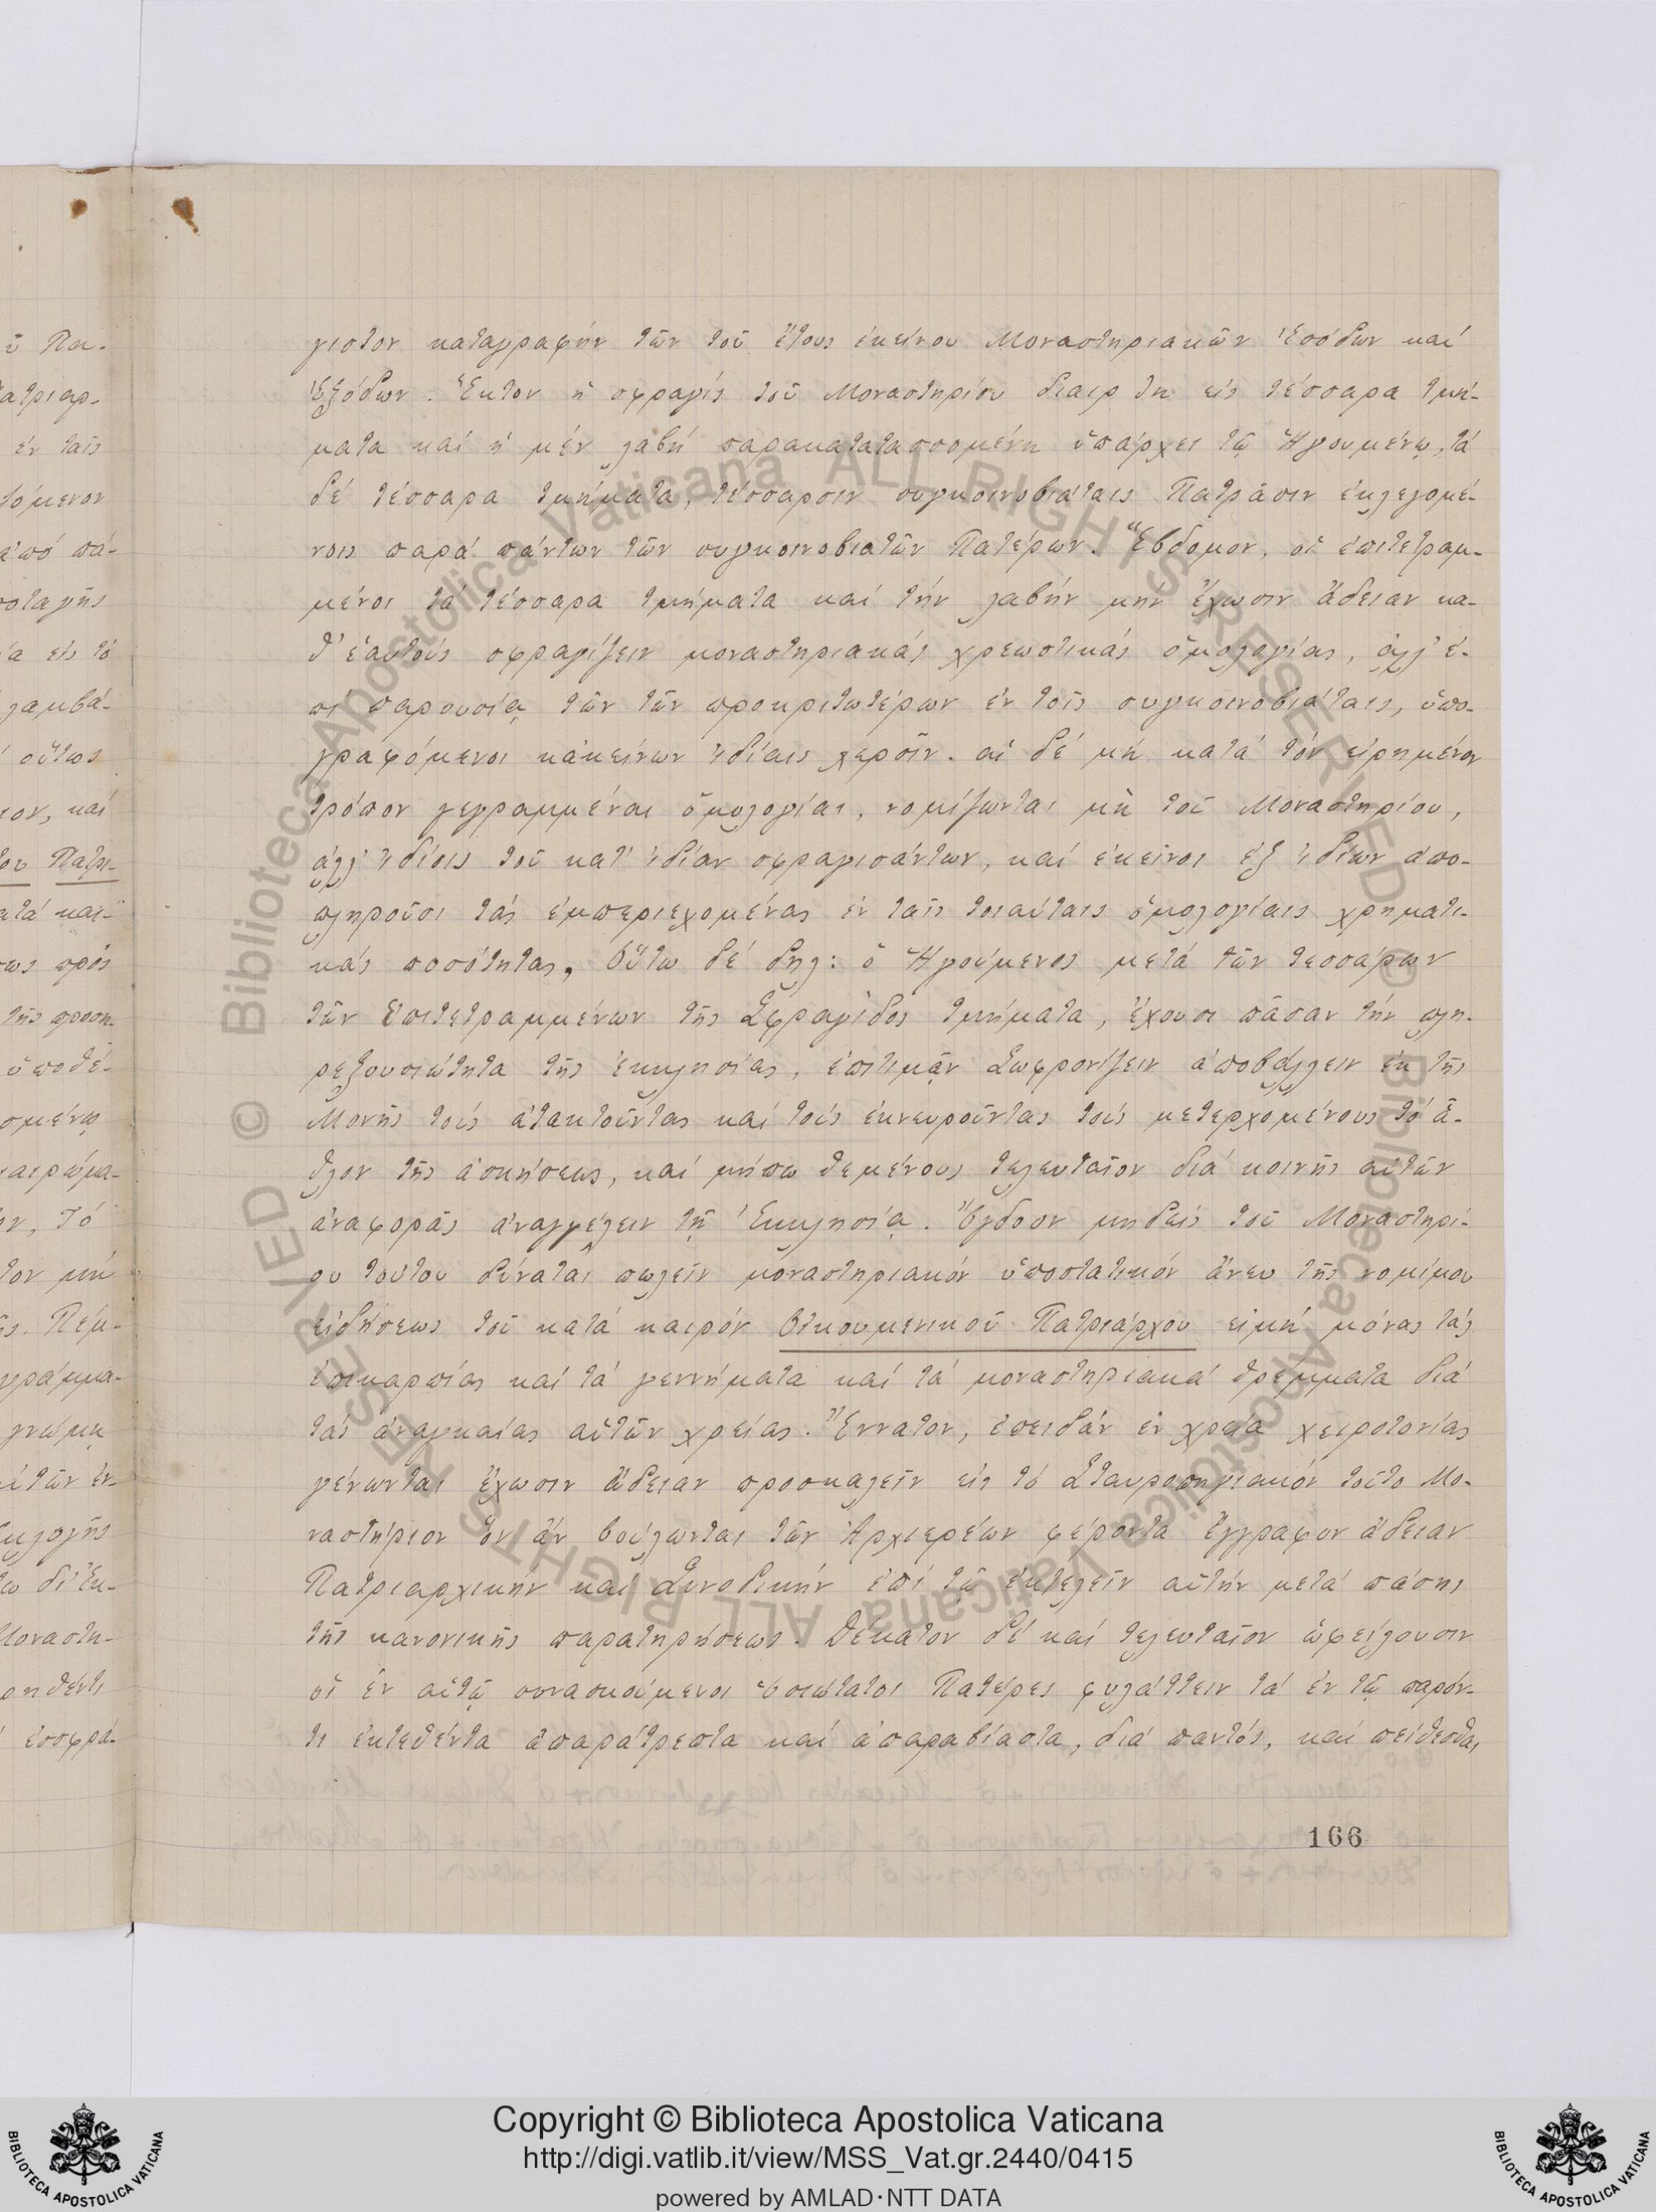 γιστον καταγραφήν τῶν τοῦ ἔτους ἐκείνου Μοναστηριακῶν Ἐσόδων καί
Ἐξόδων. Ἕκτον ἡ σφραγίς τοῦ Μοναστηρίου διαιρ τη εἰς τέσσαρα τμή-
ματα καί ἡ μέν λαβή παρακατατασσομένη ὑπάρχει τῷ Ἡγουμένῳ, τά
δέ τέσσαρα τμήματα, τέσσαρσιν συγκοινοβιάταις Πατράσιν ἐκλεγομέ-
νοις παρά πάντων τῶν συγκοινοβιατῶν Πατέρων. Ἕβδομον, οἱ ἐπιτετραμ-
μένοι τά τέσσαρα τμήματα καί τήν λαβήν μήν ἔχωσιν ἄδειαν κα-
θ' ἑαυτούς σφραγίζειν μοναστηριακάς χρεωστικάς ὁμολογίας, ἀλλ' ἐ-
πί παρουσίᾳ τῶν τῶν προκριτωτέρων ἐν τοῖς συγκοινοβιάταις, ὑπο-
γραφόμενοι κἀκείνων ἰδίαις χερσῖν. αἱ δέ μή κατά τόν εἰρημένον
τρόπον γεγραμμέναι ὁμολογίαι, νομίζωνται μή τοῦ Μοναστηρίου,
ἀλλ' ἰδίοις τοῦ κατ' ἰδίαν σφραγισάντων, καί ἐκεῖνοι ἐξ ἰδίων ἀπο-
πληροῦσι τάς ἐμπεριεχομένας ἐν ταῖς τοιαύταις ὁμολογίαις χρηματι-
κάς ποσότητας, Οὕτω δέ δηλ: ὁ Ἡγούμενος μετά τῶν τεσσάρων
τῶν Ἐπιτετραμμένων τῆς Σφραγίδος τμήματα, ἔχουσι πᾶσαν τήν πλη-
ρεξουσιώτητα τῆς Ἐκκλησίας, ἐπιτιμᾷν Σωφρονίζειν ἀποβάλλειν ἐκ τῆς
Μονῆς τούς ἀτακτοῦντας καί τούς ἐκνευροῦντας τούς μετερχομένους τό ἆ-
θλον τῆς ἀσκήσεως, καί μήπω θεμένους τελευταῖον διά κοινῆς αὐτῶν
ἀναφορᾶς ἀναγγέλειν τῇ Ἐκκλησίᾳ. Ὄγδοον μηδείς τοῦ Μοναστηρί-
ου τούτου δύναται πωλεῖν μοναστηριακόν ὑποστατικόν ἄνευ τῆς νομίμου
εἰδήσεως τοῦ κατά καιρόν Οἰκουμενικοῦ Πατριάρχου εἰμή μόνας τάς
ἐπικαρπίας καί τά γεννήματα καί τά μοναστηριακά θρέμματα διά
τάς ἀναγκαίας αὐτῶν χρείας. Ἔννατον, ἐπειδάν ἐν χρείᾳ χειροτονίας
γένωνται ἔχωσιν ἄδειαν προσκαλεῖν εἰς τό Σταυροπηγιακόν τοῦτο Μο-
ναστήριον ὅν ἄν βούλωνται τῶν Ἀρχιερέων φέροντα ἔγγραφον ἄδειαν
Πατριαρχικήν καί Συνοδικήν ἐπί τῷ ἐκτελεῖν αὐτήν μετά πάσης
τῆς κανονικῆς παρατηρήσεως. Δέκατον δέ καί τελευταῖον ὠφείλουσιν
οἱ ἐν αὐτῷ συνασκούμενοι ὁσιώτατοι Πατέρες φυλάττειν τά ἐν τῷ παρόν-
τι ἐκτεθέντα ἀπαράτρεπτα καί ἀπαραβίαστα, διά παντός, καί πείθεσθαι
166
Copyright © Biblioteca Apostolica Vaticana
http://digi.vatlib.it/view/MSS_Vat.gr.2440/0415
powered by AMLAD·NTT DATA